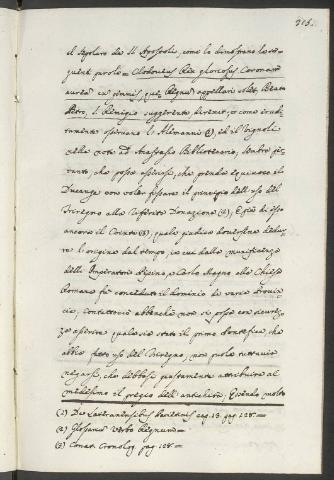 215.
il Sepolcro de SS Apostoli, come lo dimostrano le se=
guenti parole = Clodoveus Rex gloriosus Coronam
auream cu gemmis, quæ Regnum appellari solet, Beato
Petro, S. Remigio suggerente, direxit; come erudi=
tamente osservano le Alemanni (1), ed il Vignoli
nelle note ad Anastasio Bibliotecario, sembra per=
tanto, che possa asserirsi, che prenda equivoco il
Ducange con voler fissare il principio dell'uso del
Triregno alla riferita Donazione (2), E più di esso
ancora il Conati (3), quale pudica doversene dedur=
re l'origine dal tempo, in cui dalla munificenza
delli Imperatori Pipino, e Carlo Magno alla Chiesa
Romana fu conceduto il dominio di varie Provin=
cie, contuttociò abbenchè non si possa con sicurez=
za asserire quale sia stato il primo Pontefice, che
abbia fatto uso del Triregno, non puole tuttavia
negarsi, che debbasi giustamente attribuire al
medesimo il pregio dell'antichità; Essendo molto
(1) De Lateranensibus Parietinis cap. 13. pag. 128. =
(2) Glossario verbo Regnum =
(3) Conat. Cronolog. pag. 128. =